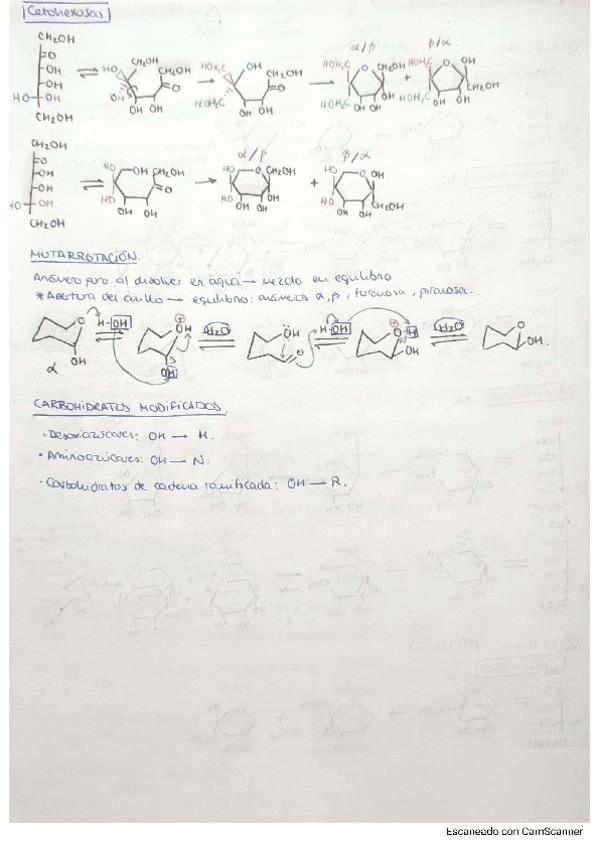 Cetohexosas
CH2OH CH2OH OH HOH2C OH α/β β/α
=O HO CH2OH CH2OH HOH2C O CH2OH HOH2C O OH
OH O O +
OH OH HOH2C HOH2C HOH2C CH2OH
HO OH OH OH OH OH OH OH OH OH
CH2OH
CH2OH α/β β/α
=O HO OH CH2OH HO O CH2OH HO O OH
OH O +
OH HO HO HO CH2OH
HO OH OH OH OH OH OH OH
CH2OH
MUTARROTACIÓN.
Anómero puro al disolver en agua → mezcla en equilibrio
*Apertura del anillo → equilibrio: anómeros α, β, furanosa, piranosa..
O H-OH ⊕ OH H2O ÖH H-OH ⊕ O-H H2O O
OH OH O OH OH.
α
CARBOHIDRATOS MODIFICADOS.
• Desoxiazúcares: OH → H.
• Aminoazúcares: OH → N.
• Carbohidratos de cadena ramificada: OH → R.
Escaneado con CamScanner